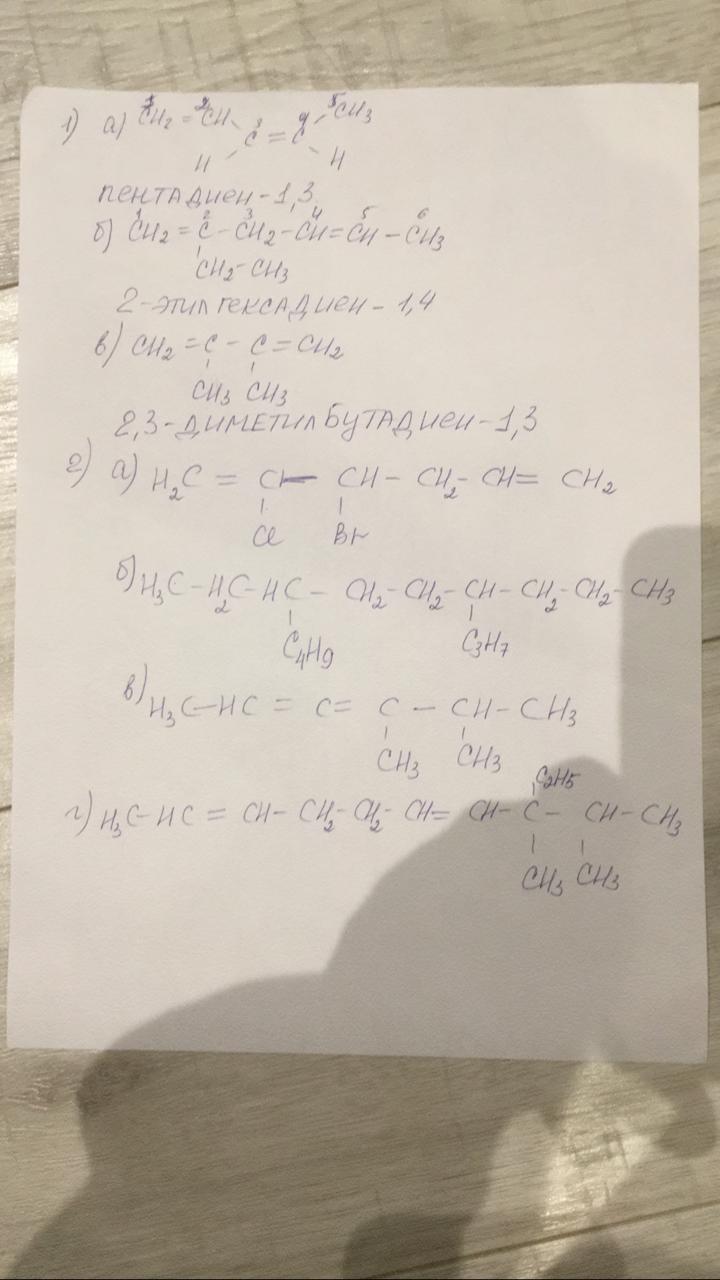 1) а) CH₂ = CH
1 2 3 4 5
C = C CH₃
H H
ПЕНТАДИЕН-1,3
1 2 3 4 5 6
б) CH₂ = C - CH₂ - CH = CH - CH₃
CH₂-CH₃
2-ЭТИЛГЕКСАДИЕН-1,4
в) CH₂ = C - C = CH₂
CH₃ CH₃
2,3-ДИМЕТИЛБУТАДИЕН-1,3
2) а) H₂C = C - CH - CH₂ - CH = CH₂
Cl Br
б) H₃C - H₂C - HC - CH₂ - CH₂ - CH - CH₂ - CH₂ - CH₃
C₄H₉ C₃H₇
в) H₃C - HC = C = C - CH - CH₃
CH₃ CH₃
C₂H₅
г) H₃C - HC = CH - CH₂ - CH₂ - CH = CH - C - CH - CH₃
CH₃ CH₃